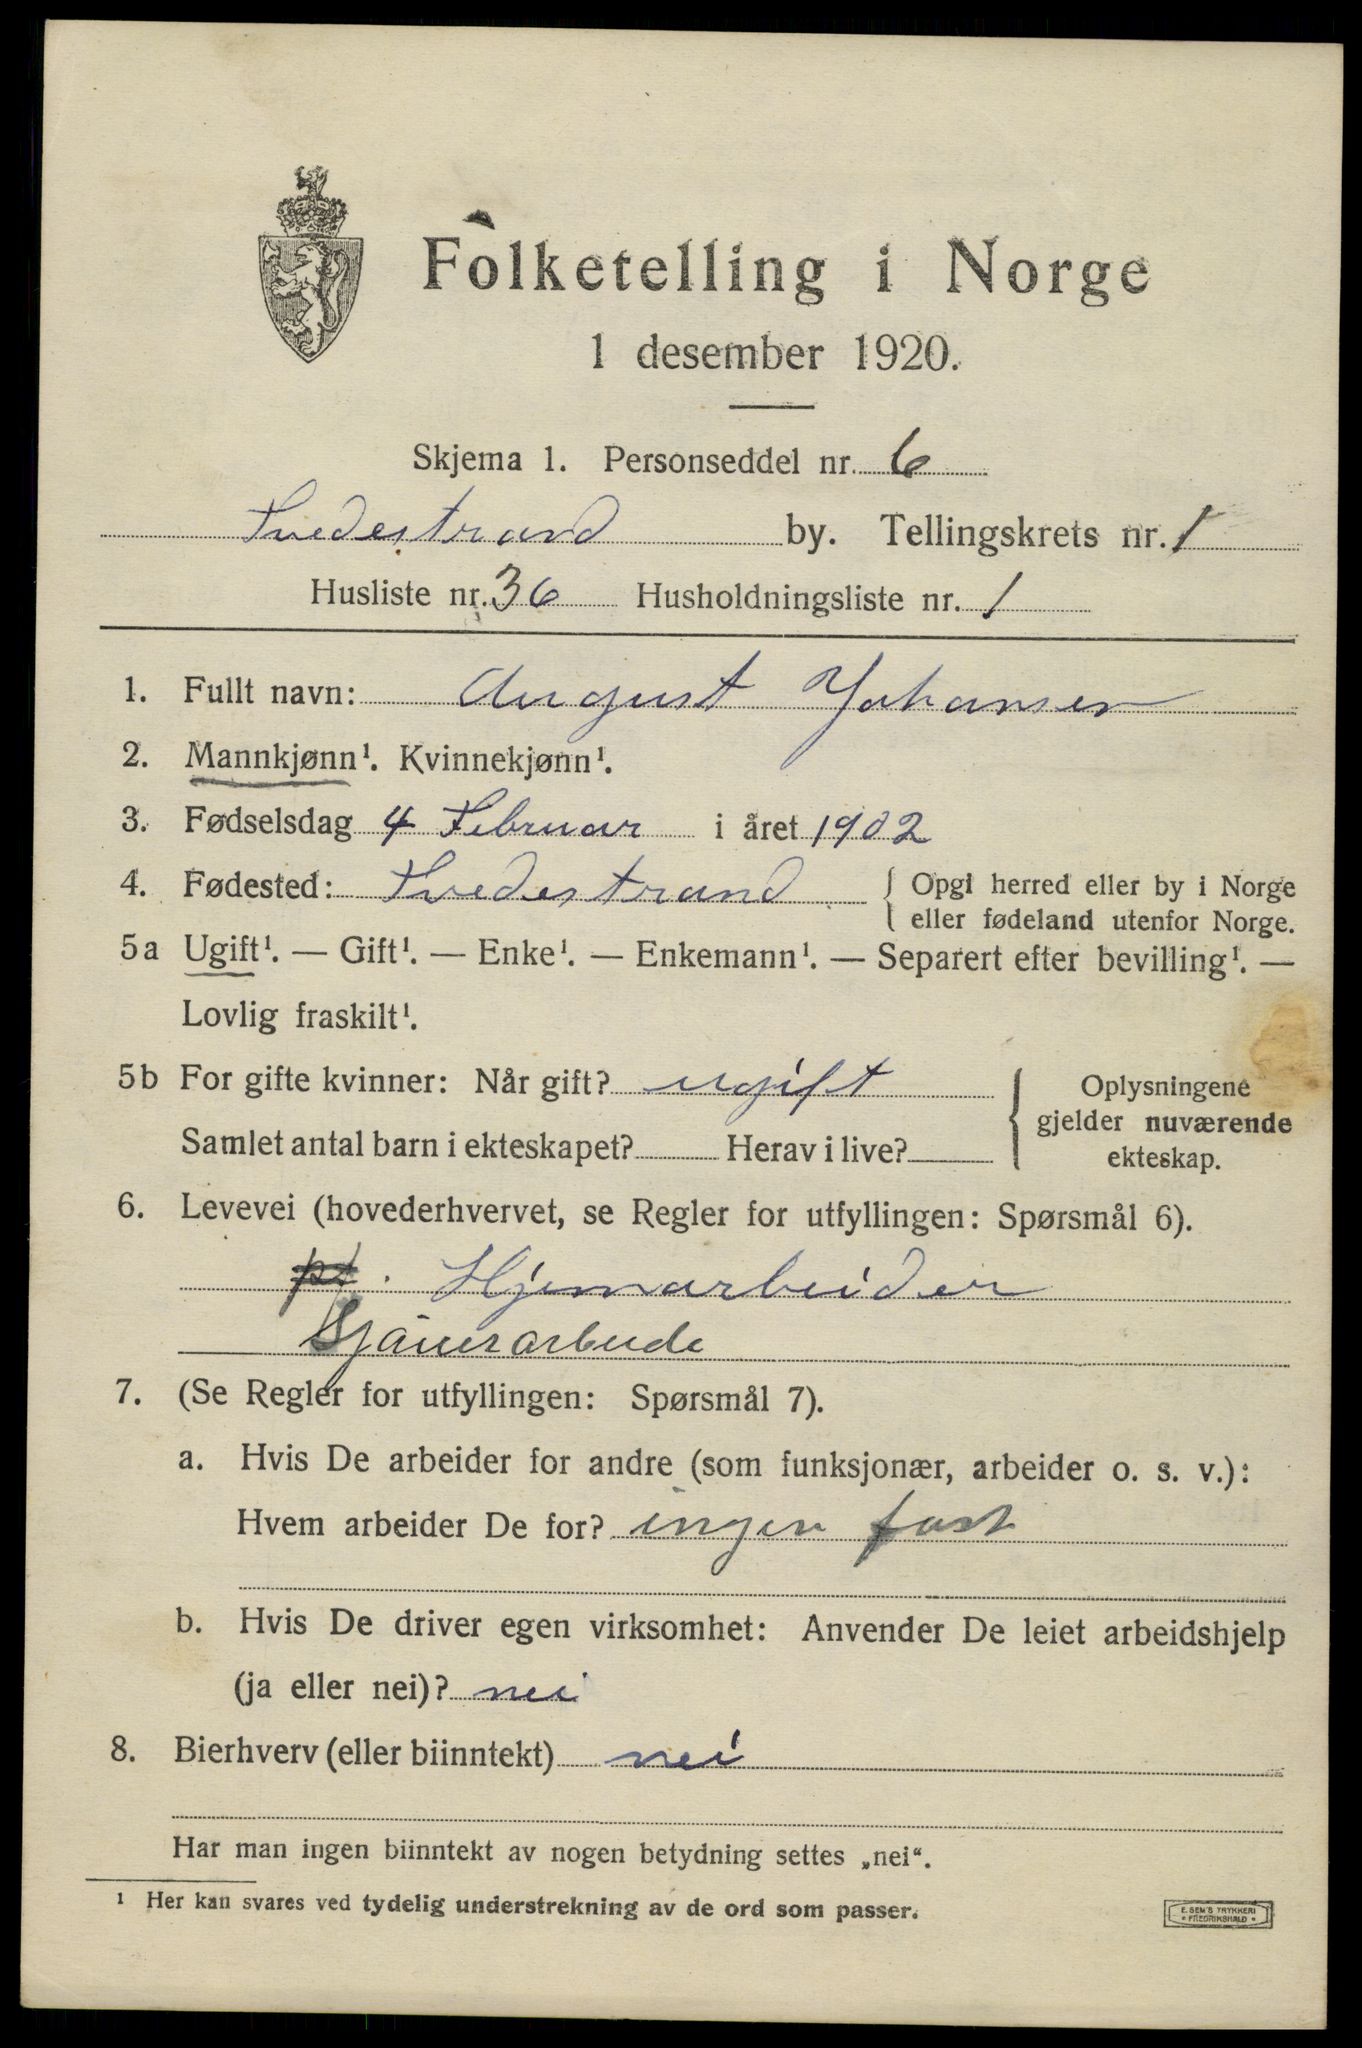 Folketelling i Norge
1 desember 1920.
Skjema 1. Personseddel nr. 6
Tvedestrand by. Tellingskrets nr. 1
Husliste nr. 36 Husholdningsliste nr. 1
1. Fullt navn: August Johansen
2. Mannkjønn¹. Kvinnekjønn¹.
3. Fødselsdag 4 Februar i året 1902
4. Fødested: Tvedestrand { Opgi herred eller by i Norge
eller fødeland utenfor Norge.
5a Ugift¹. — Gift¹. — Enke¹. — Enkemann¹. — Separert efter bevilling¹. —
Lovlig fraskilt¹.
5b For gifte kvinner: Når gift? ugift
Samlet antal barn i ekteskapet? Herav i live?
{ Oplysningene
gjelder nuværende
ekteskap.
6. Levevei (hovederhvervet, se Regler for utfyllingen: Spørsmål 6).
pt. Hjemarbeider
Sjauerarbeide
7. (Se Regler for utfyllingen: Spørsmål 7).
a. Hvis De arbeider for andre (som funksjonær, arbeider o. s. v.):
Hvem arbeider De for? ingen fast
b. Hvis De driver egen virksomhet: Anvender De leiet arbeidshjelp
(ja eller nei)? nei
8. Bierhverv (eller biinntekt) nei
Har man ingen biinntekt av nogen betydning settes „nei“.
¹ Her kan svares ved tydelig understrekning av de ord som passer.
E. SEM'S TRYKKERI
• FREDRIKSHALD •